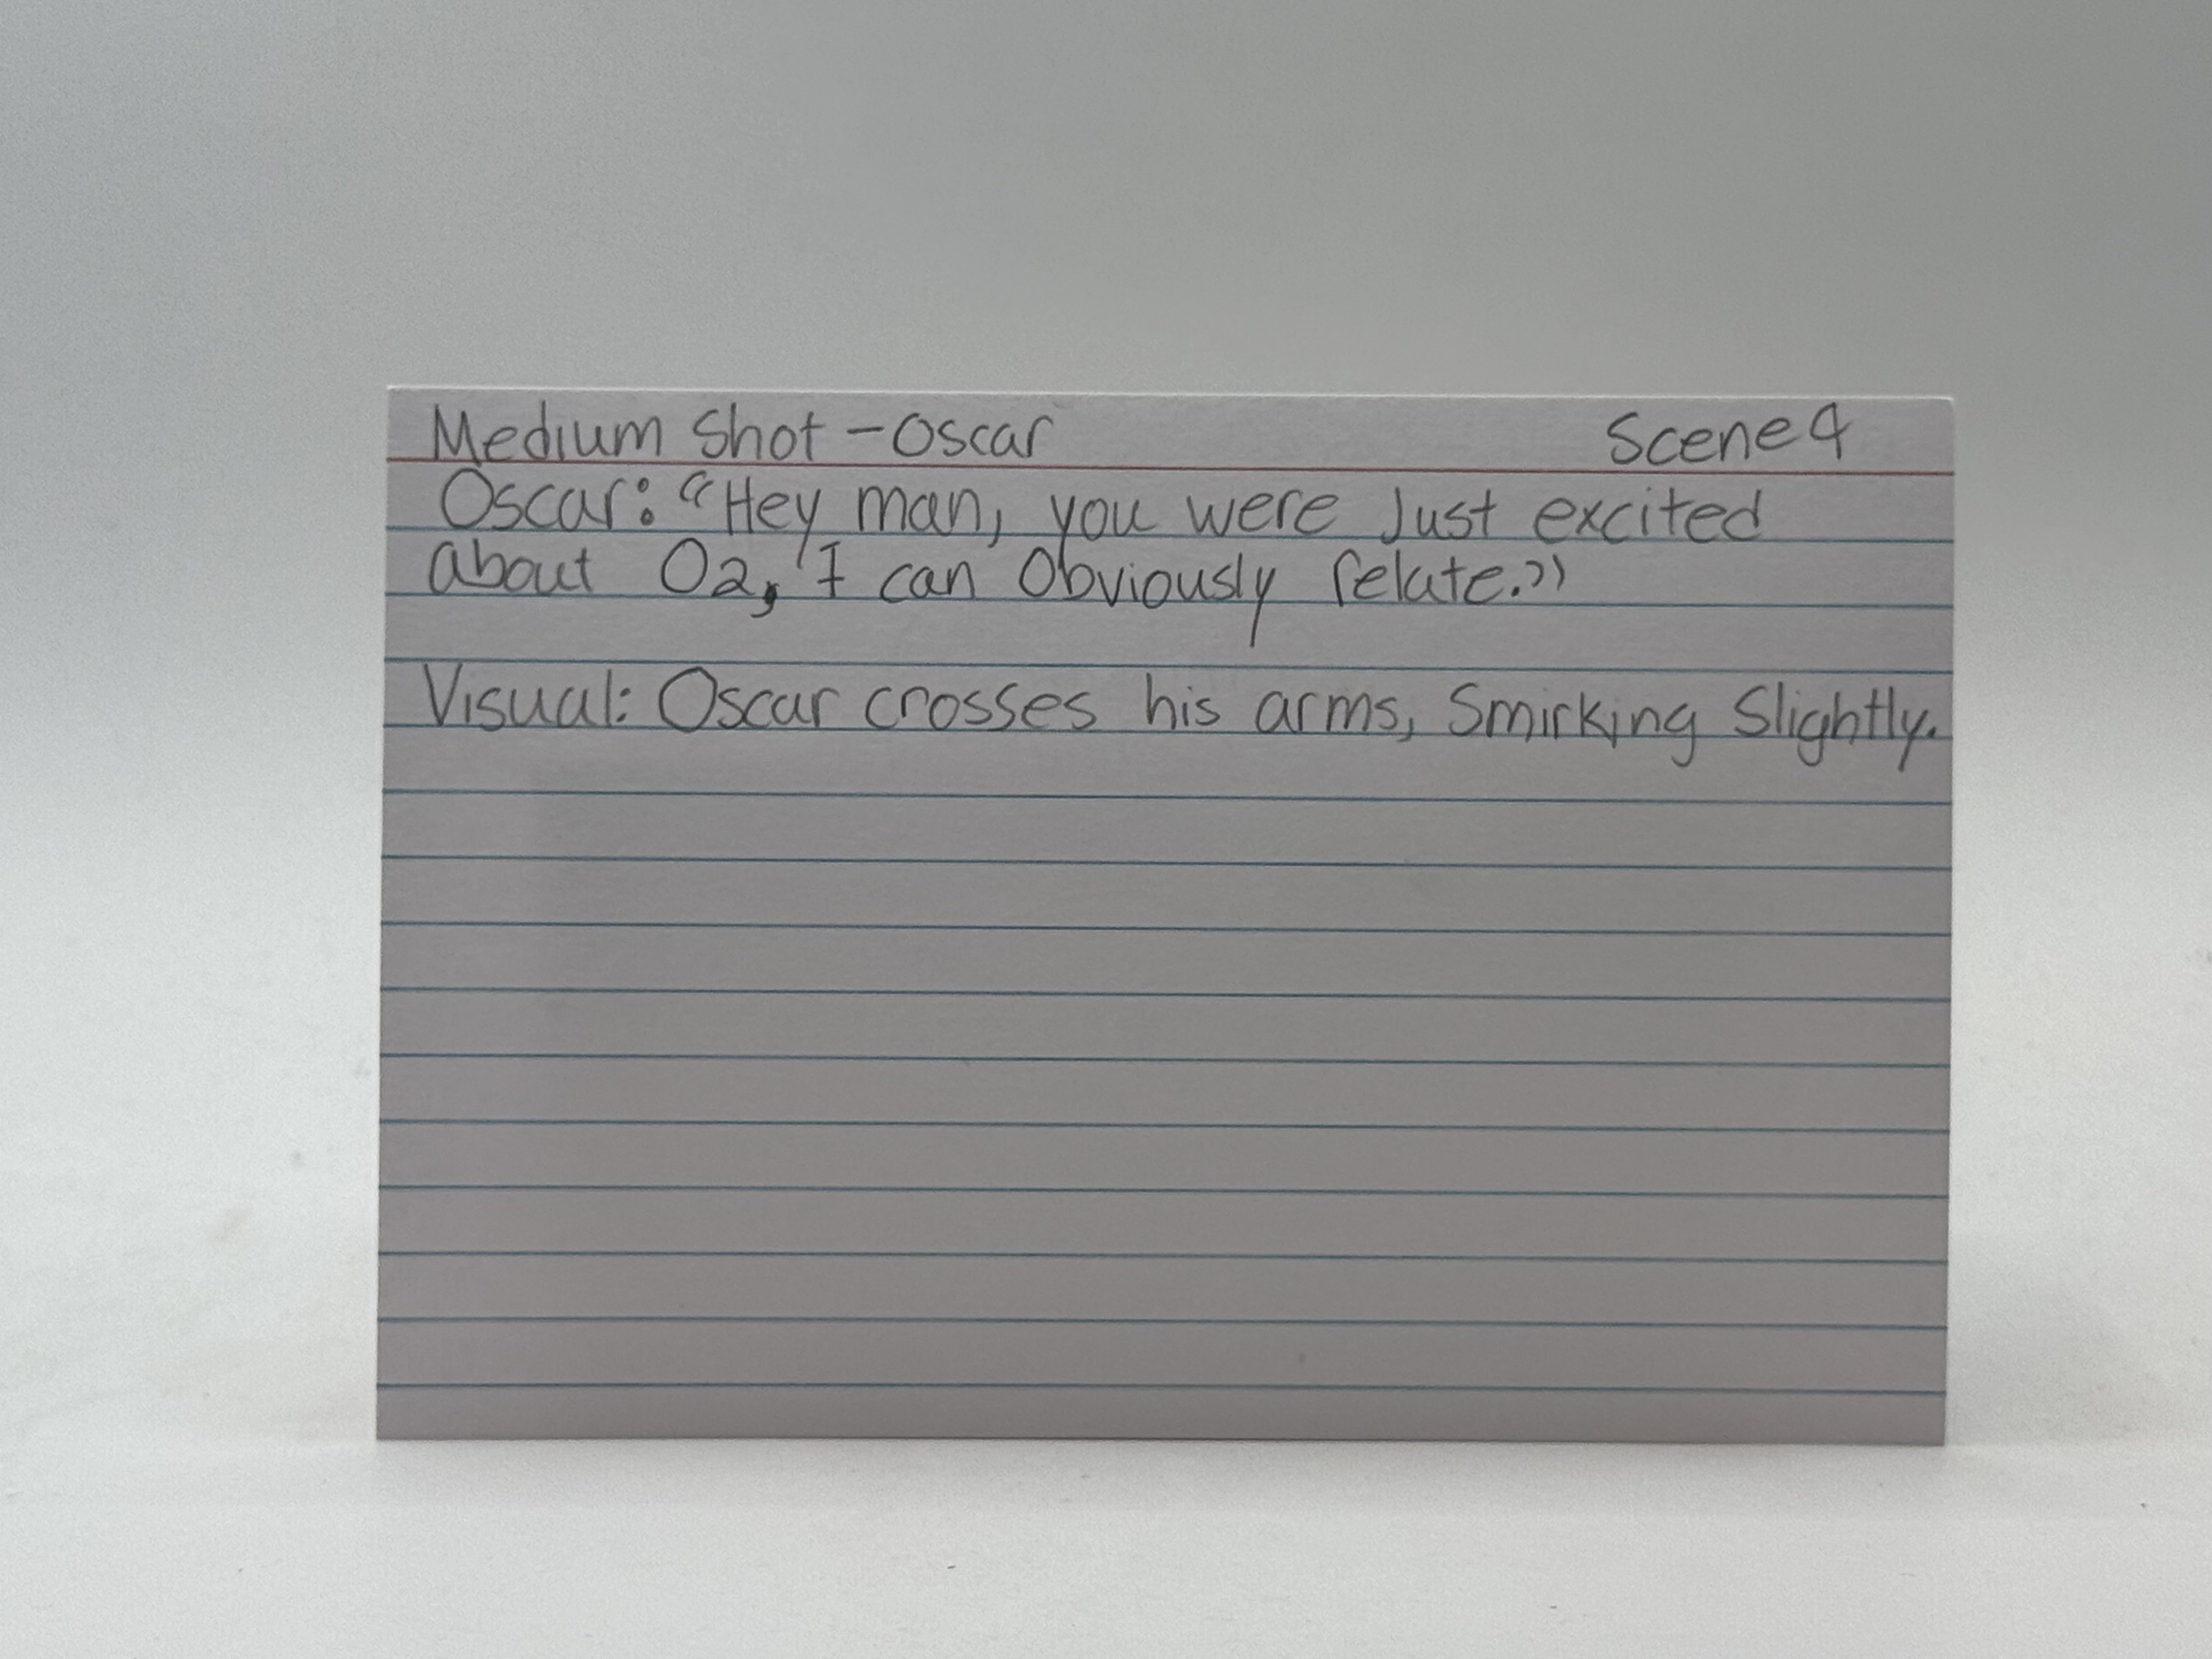 Medium Shot - Oscar Scene 4
Oscar: "Hey man, you were Just excited
about O2, I can Obviously relate."
Visual: Oscar crosses his arms, Smirking Slightly.